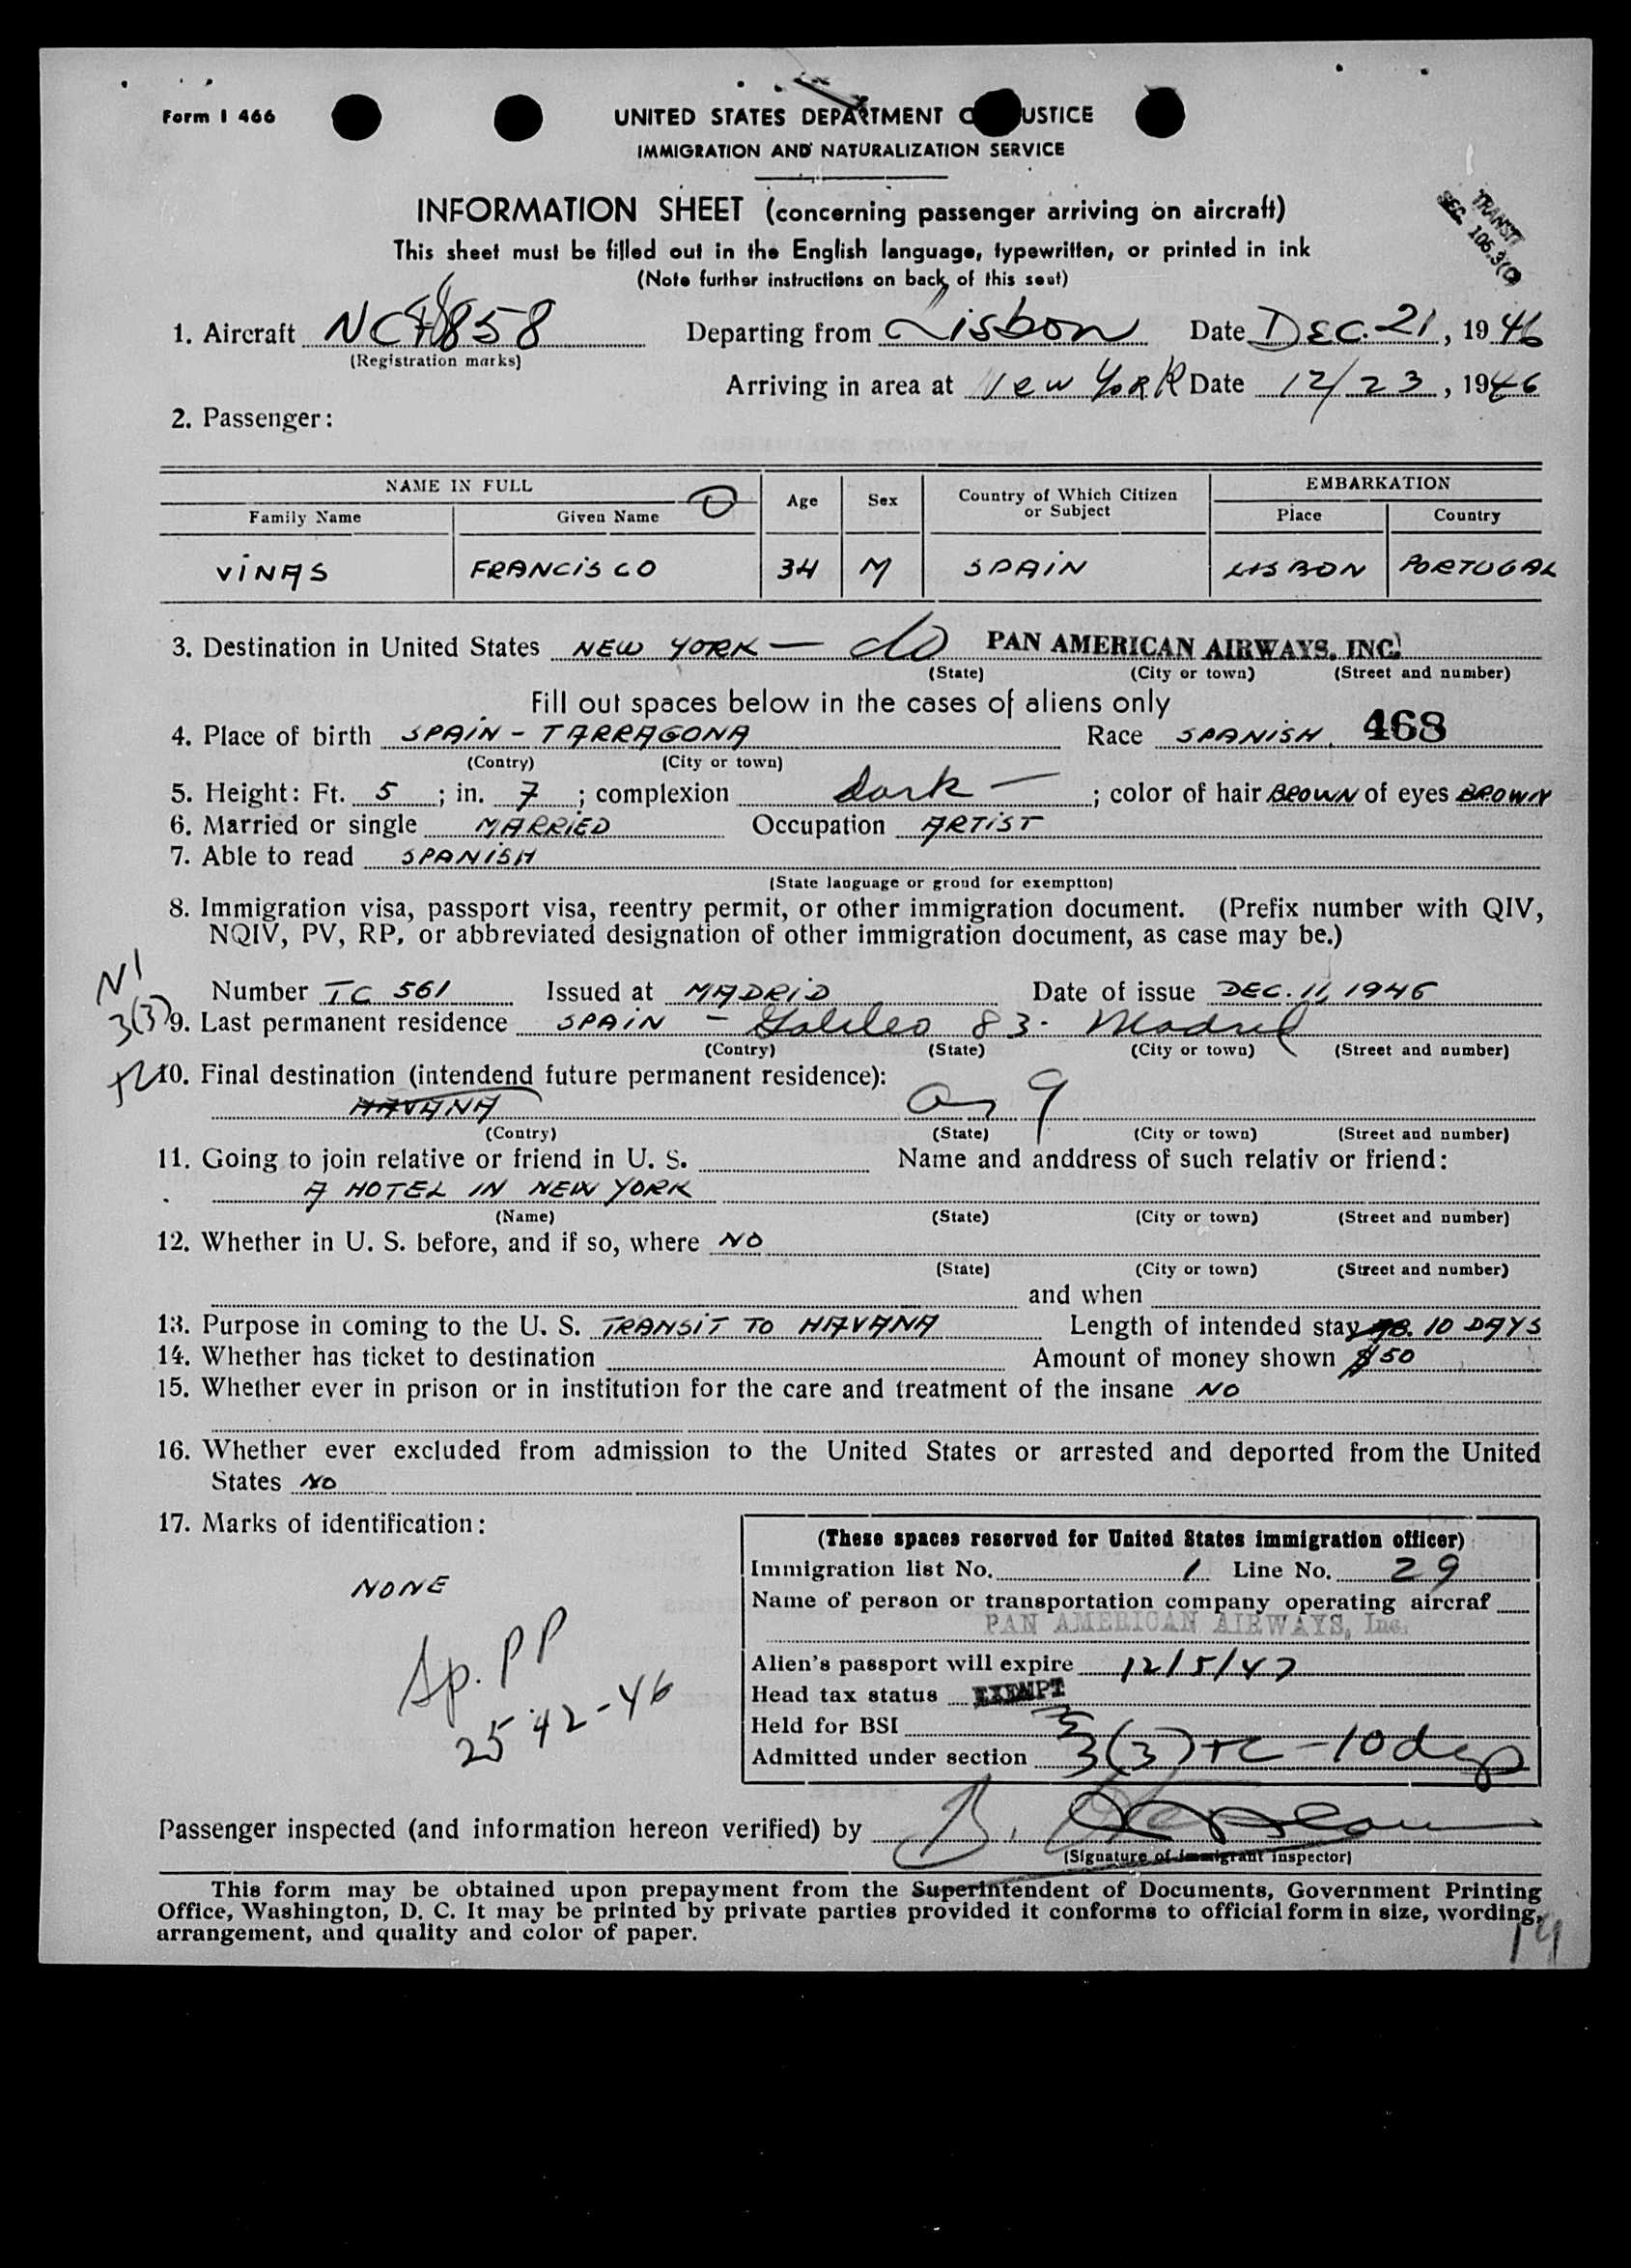 Form I 466
UNITED STATES DEPARTMENT O USTICE
IMMIGRATION AND NATURALIZATION SERVICE
INFORMATION SHEET (concerning passenger arriving on aircraft)
TRANSIT
SEC. 105.3(C)
This sheet must be filled out in the English language, typewritten, or printed in ink
(Note further instructions on back of this seet)
1. Aircraft Departing from Lisbon Date DEC. 21, 1946
(Registration marks)
Arriving in area at New YoRK Date 12/23, 1946
2. Passenger:
NAME IN FULL Age Sex Country of Which Citizen or Subject EMBARKATION
Family Name Given Name Place Country
ViNAS FRANCiSCO 34 M SPAiN LISBON PORTUGAL
3. Destination in United States NEW YORK — c/o PAN AMERICAN AIRWAYS, INC.
(State) (City or town) (Street and number)
Fill out spaces below in the cases of aliens only
4. Place of birth SPAiN - TARRAGONA Race SPANiSH. 468
(Contry) (City or town)
5. Height: Ft. 5; in. 7; complexion Dark —; color of hair BROWN of eyes BROWN
6. Married or single MARRiED Occupation ARTiST
7. Able to read SPANiSH
(State language or groud for exemption)
8. Immigration visa, passport visa, reentry permit, or other immigration document. (Prefix number with QIV,
NQIV, PV, RP, or abbreviated designation of other immigration document, as case may be.)
NI
Number TC 561 Issued at MADRiD Date of issue DEC. 11, 1946
3(3)
9. Last permanent residence SPAiN - Galileo 83. Madrid
(Contry) (State) (City or town) (Street and number)
10. Final destination (intendend future permanent residence):
HAVANA
(Contry) (State) (City or town) (Street and number)
11. Going to join relative or friend in U. S. Name and anddress of such relativ or friend:
A HOTEL IN NEW YORK
(Name) (State) (City or town) (Street and number)
12. Whether in U. S. before, and if so, where NO
(State) (City or town) (Street and number)
and when
13. Purpose in coming to the U. S. TRANSiT TO HAVANA Length of intended stay 10 DAYS
14. Whether has ticket to destination Amount of money shown $50
15. Whether ever in prison or in institution for the care and treatment of the insane NO
16. Whether ever excluded from admission to the United States or arrested and deported from the United
States NO
17. Marks of identification:
NONE
Sp. PP
2542-46
(These spaces reserved for United States immigration officer)
Immigration list No. 1 Line No. 29
Name of person or transportation company operating aircraf
PAN AMERICAN AIRWAYS, Inc.
Alien's passport will expire 12/5/47
Head tax status EXEMPT
Held for BSI
Admitted under section 3(3) TC - 10 dys
Passenger inspected (and information hereon verified) by
(Signature of immigrant inspector)
This form may be obtained upon prepayment from the Superintendent of Documents, Government Printing
Office, Washington, D. C. It may be printed by private parties provided it conforms to official form in size, wording,
arrangement, and quality and color of paper.